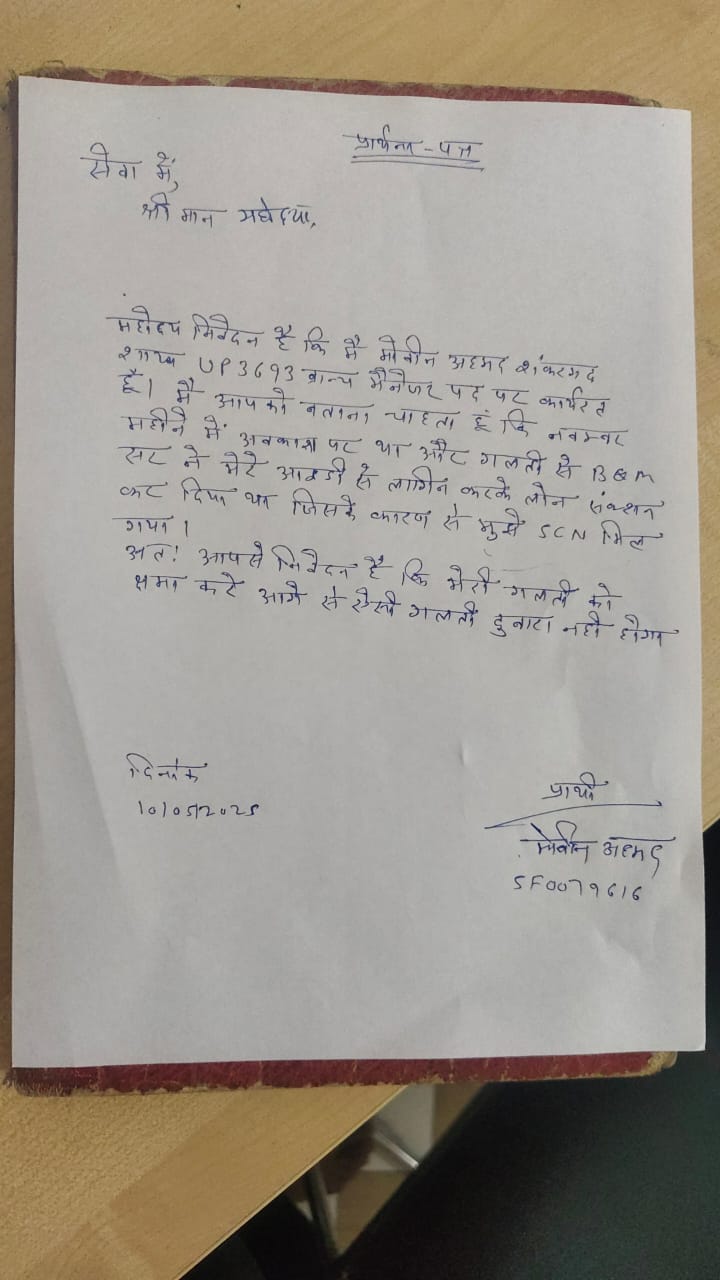 प्रार्थना-पत्र
सेवा में,
श्री मान महोदया,
महोदय निवेदन है कि मैं मोबीन अहमद शंकरगढ़
शाखा UP3693 ब्रान्च मैनेजर पद पर कार्यरत
हूँ। मैं आपको बताना चाहता हूं कि नवम्बर
महीने में अवकाश पर था और गलती से B&M
सर ने मेरे आइडी से लागिन करके लोन संक्शन
कर दिया था जिसके कारण से मुझे SCN मिल
गया।
अतः आपसे निवेदन है कि मेरी गलती को
क्षमा करे आगे से ऐसी गलती दुबारा नही होगा
दिनांक
10/05/2025
प्रार्थी
मोबीन अहमद
SF0079616